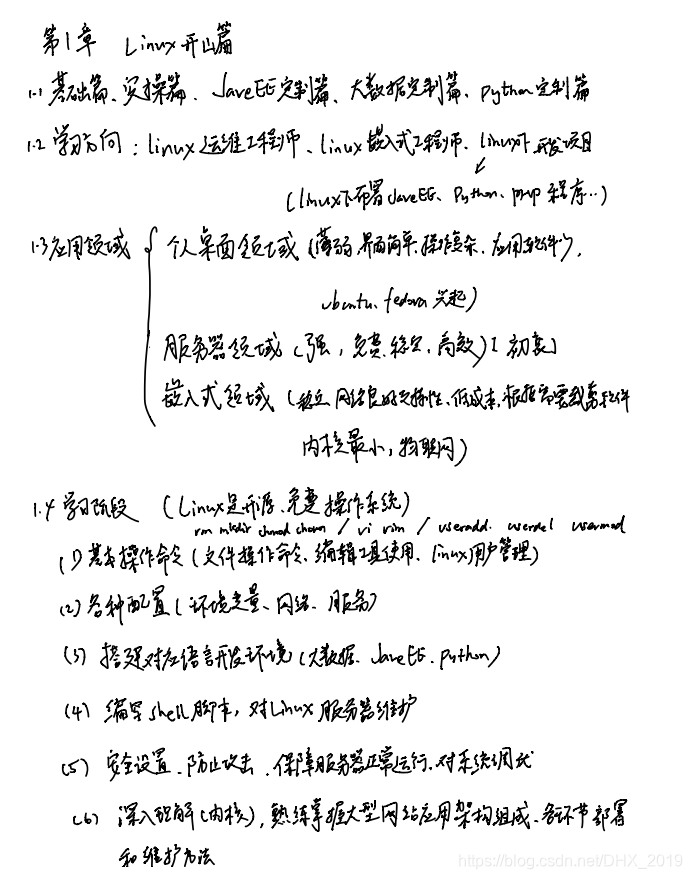 第1章 Linux开山篇
1.1 基础篇、实操篇、JavaEE定制篇、大数据定制篇、python定制篇
1.2 学习方向：linux运维工程师、linux嵌入式工程师、linux下开发项目
(linux下部署JavaEE、Python、PHP程序…)
1.3 应用领域
个人桌面领域 (薄弱,界面简单,操作复杂、应用软件少,
ubuntu、fedora 兴起)
服务器领域 (强，免费、稳定、高效) [初衷]
嵌入式领域 (稳定、网络良好支持性、低成本,根据需要裁剪软件
内核最小，物联网)
1.4 学习阶段 (Linux是开源、免费操作系统)
rm mkdir chmod chown / vi vim / useradd. userdel usermod
(1) 基本操作命令 (文件操作命令、编辑工具使用、linux用户管理)
(2) 各种配置 (环境变量、网络、服务)
(3) 搭建对应语言开发环境 (大数据、JavaEE、python)
(4) 编写shell脚本，对Linux服务器维护
(5) 安全设置、防止攻击、保障服务器正常运行、对系统调优
(6) 深入理解(内核),熟练掌握大型网站应用架构组成、各环节部署
和维护方法
https://blog.csdn.net/DHX_2019